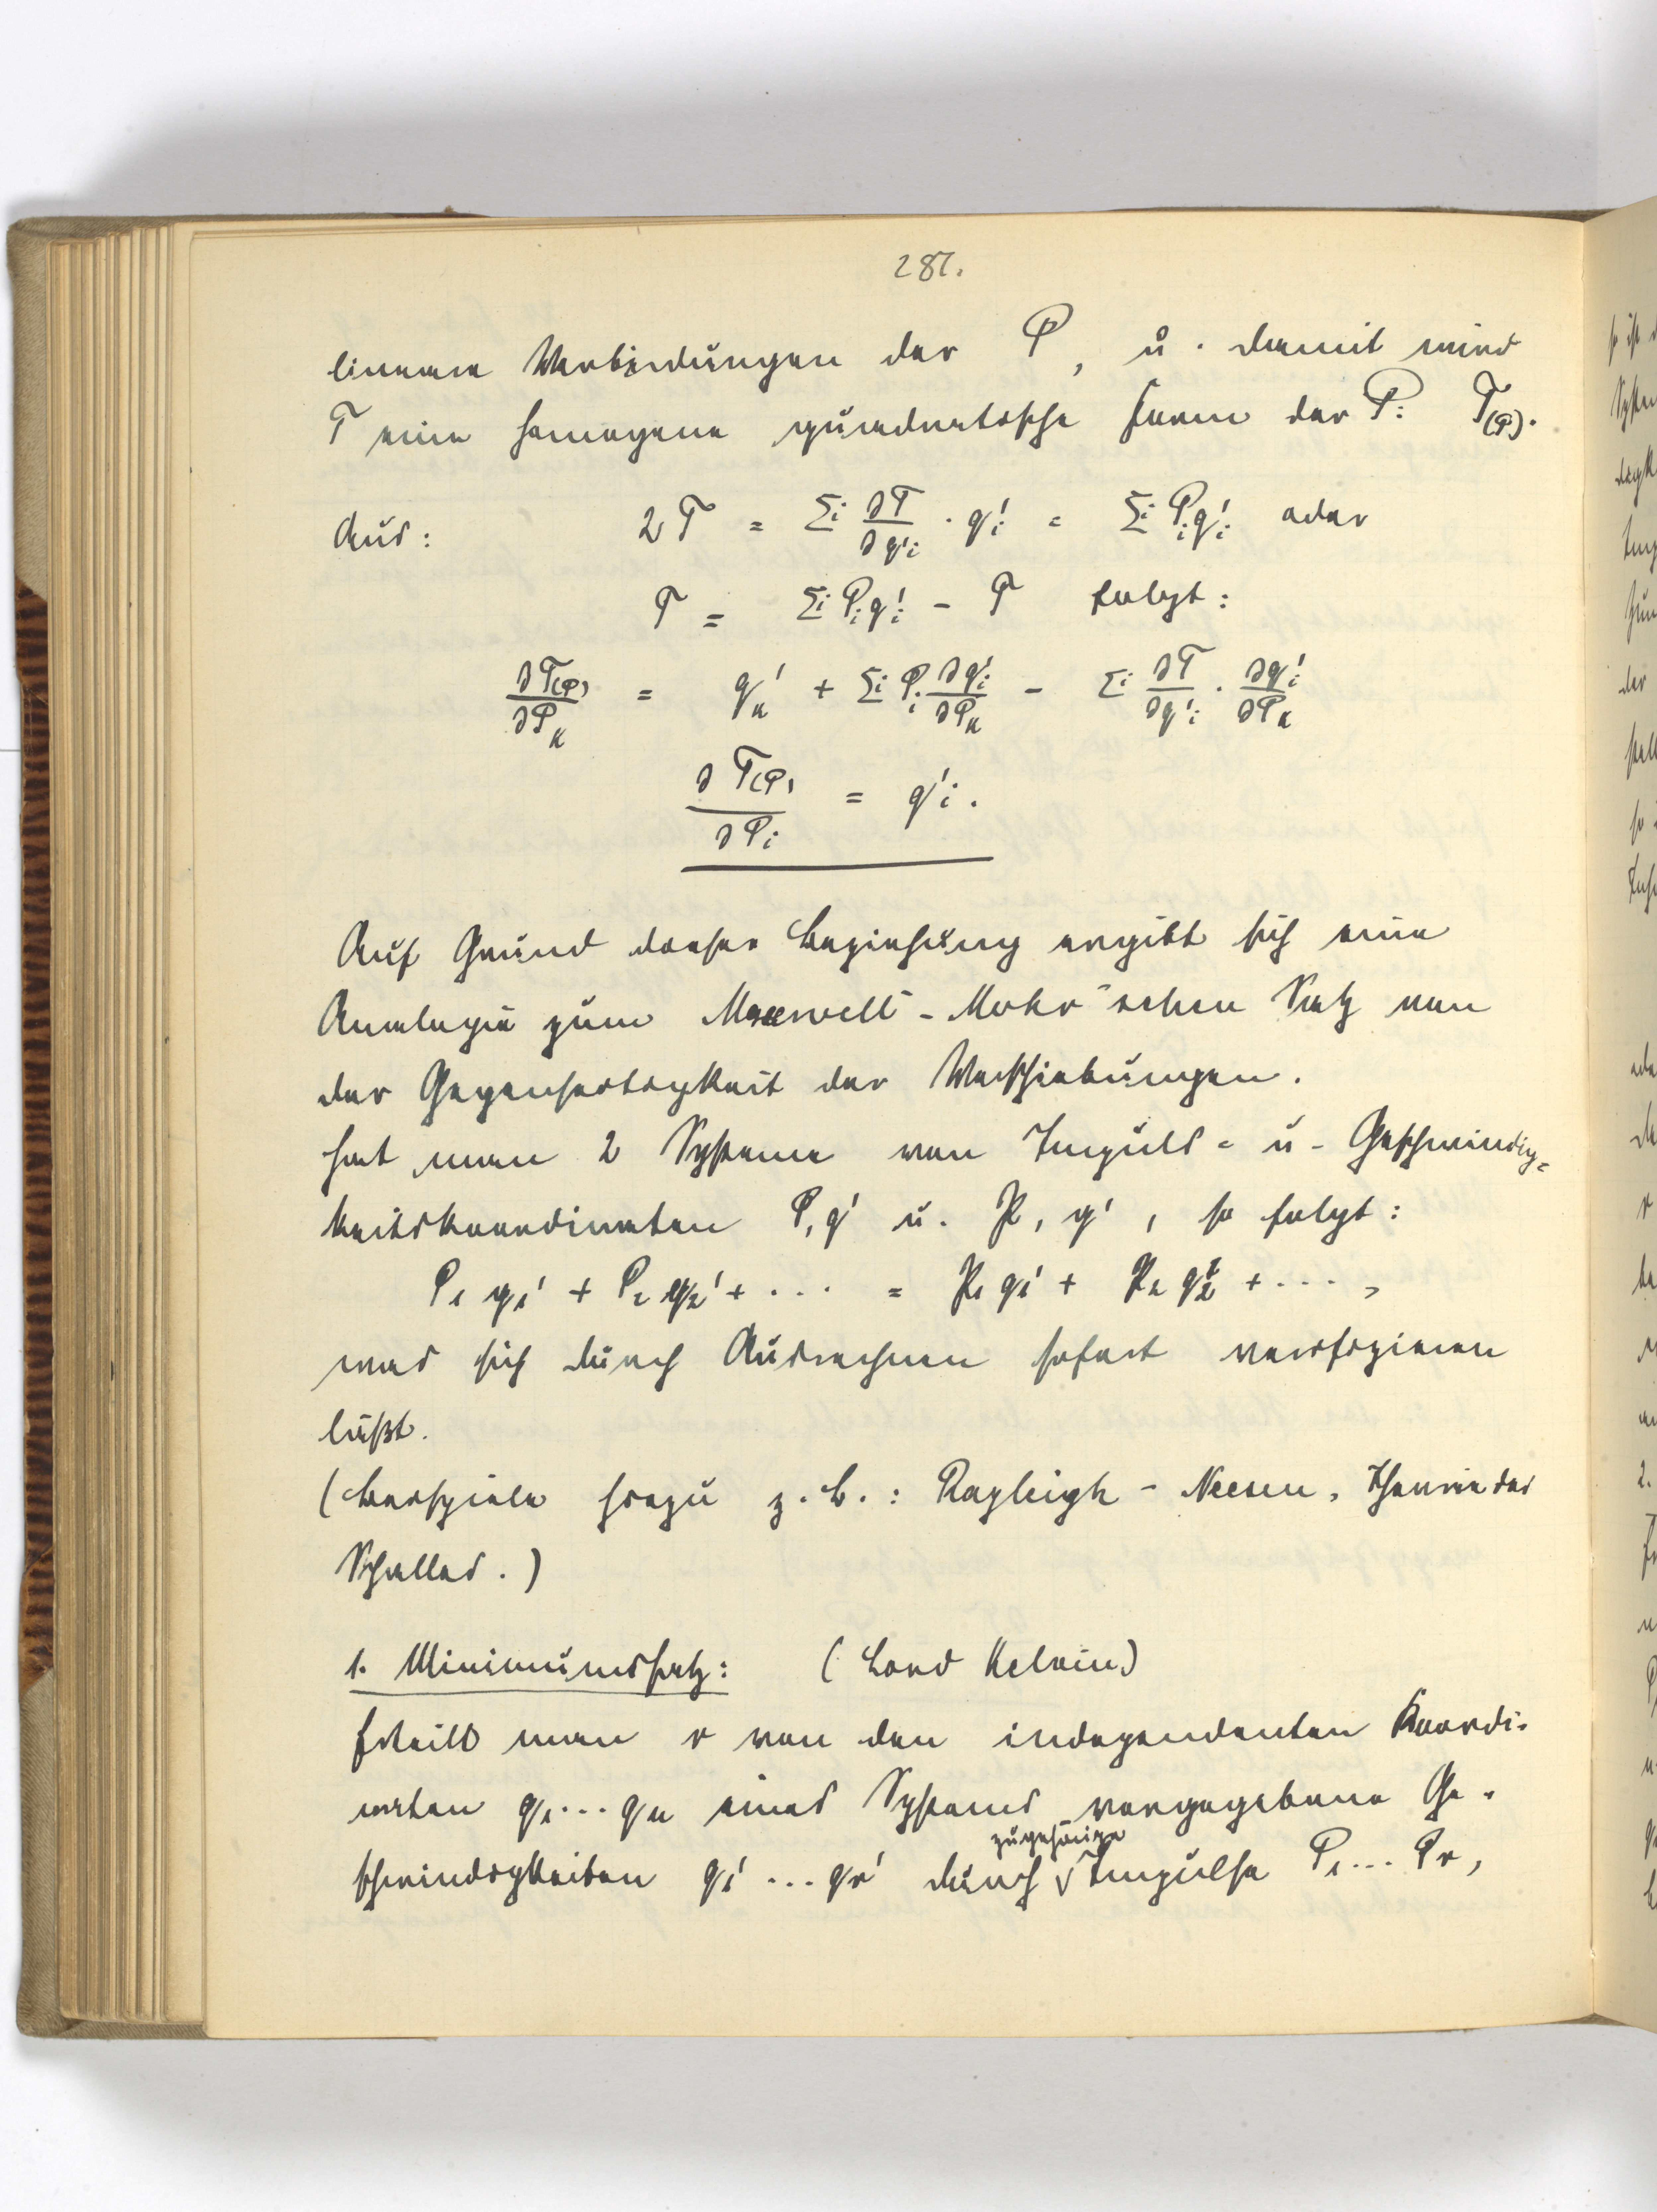 287.
lineare Verbindungen der P, u. damit wird
T eine homogene quadratische Form der P: T(P).
Aus: 2T = Σi ∂T/∂q'i · q'i = Σi Pi q'i oder
T = Σi Pi q'i − T folgt:
∂T(P)/∂Pk = q'k + Σi Pi ∂q'i/∂Pk − Σi ∂T/∂q'i · ∂q'i/∂Pk
∂T(P)/∂Pi = q'i.
Auf Grund dieser Beziehung ergibt sich eine
Analogie zum Maxwell-Mohr'schen Satz von
der Gegenseitigkeit der Verschiebungen.
Hat man 2 Systeme von Impuls- u. Geschwindig-
keitskoordinaten P, q' u. 𝔓, 𝔮', so folgt:
P1 𝔮1' + P2 𝔮2' + ... = 𝔓1 q1' + 𝔓2 q2' + ... ,
was sich durch Ausrechnen sofort verifizieren
läßt.
(Beispiele hiezu z. B.: Rayleigh - Neesen, Theorie des
Schalles.)
1. Minimumsatz: (Lord Kelvin)
Erteilt man r von den independenten Koordi-
naten q1...qn eines Systems vorgegebene Ge-
schwindigkeiten q1' ... qr' durch zugehörige Impulse P1...Pr,